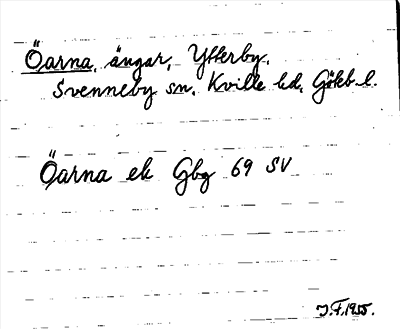 Öarna, ängar, Ytterby,
Svenneby sn, Kville hd, Göteb. l.
Öarna ek Gbg 69 SV
J.F. 1955.